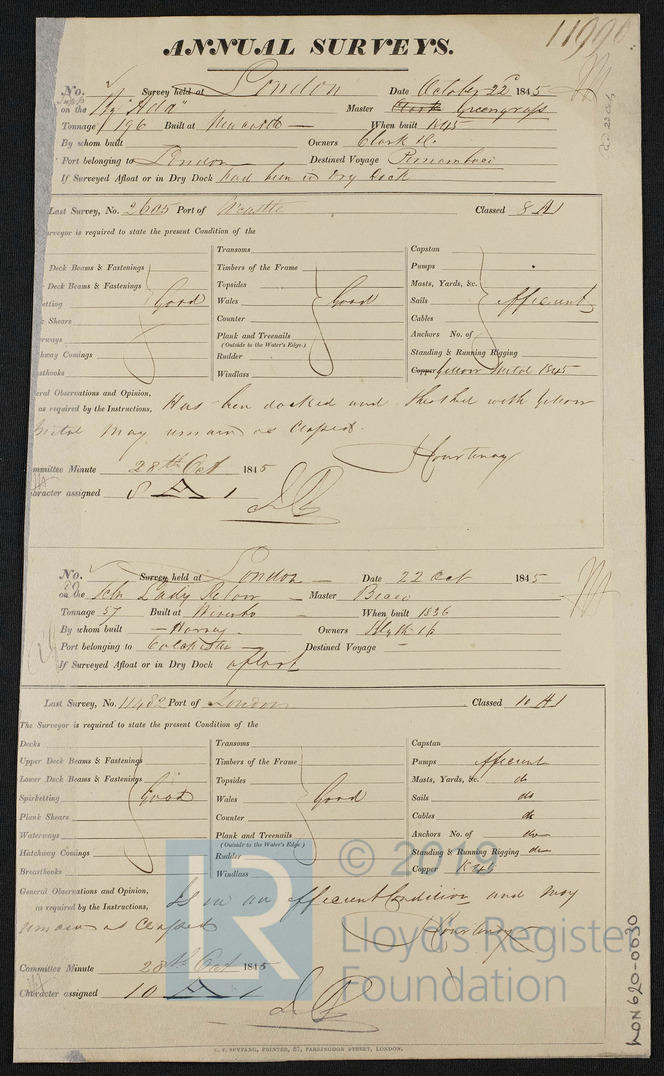 11990
ANNUAL SURVEYS.
No. Survey held at London Date October 22d 1845
on the "Ada" Master Clark Greengrass
Tonnage 196 Built at Newcastle When built 1845
By whom built Owners Clark &c.
Port belonging to London Destined Voyage Pernambuco
If Surveyed Afloat or in Dry Dock had been in Dry Dock
Last Survey, No. 2605 Port of NCastle Classed 8 A1
urveyor is required to state the present Condition of the
Transoms Capstan
Deck Beams & Fastenings Timbers of the Frame Pumps
Deck Beams & Fastenings Topsides Masts, Yards, &c.
etting Good Wales Good Sails efficient
Shears Counter Cables
rways Plank and Treenails Anchors No. of
(Outside to the Water's Edge.)
hway Comings Rudder Standing & Running Rigging
sthooks Windlass Copper yellow Metal 1845
eral Observations and Opinion, Has been docked and sheathed with yellow
as required by the Instructions,
Metal May remain as Classed.
Courtenay
mmittee Minute 28th Oct 1845
aracter assigned 8 A 1
No. Survey held at London Date 22 Oct 1845
on the Schr Lady Master
Tonnage 57 Built at Wivenhoe When built 1836
By whom built Harvey Owners Blyth &c
Port belonging to Colchester Destined Voyage
If Surveyed Afloat or in Dry Dock afloat
Last Survey, No. 11482 Port of London Classed 10 A1
The Surveyor is required to state the present Condition of the
Decks Transoms Capstan
Upper Deck Beams & Fastenings Timbers of the Frame Pumps efficient
Lower Deck Beams & Fastenings Topsides Masts, Yards, &c. do
Spirketting Good Wales Good Sails do
Plank Shears Counter Cables do
Waterways Plank and Treenails Anchors No. of do
(Outside to the Water's Edge.)
Hatchway Comings Rudder Standing & Running Rigging do
Breasthooks Windlass Copper
General Observations and Opinion, Is in an efficient Condition and may
as required by the Instructions,
remain as Classed
Courtenay
Committee Minute 28th Oct 1845
Character assigned 10 A 1
C. F. SEYFANG, PRINTER, 57, FARRINGDON STREET, LONDON.
LON620-0030
LR
© 2019
Lloyd's Register
Foundation